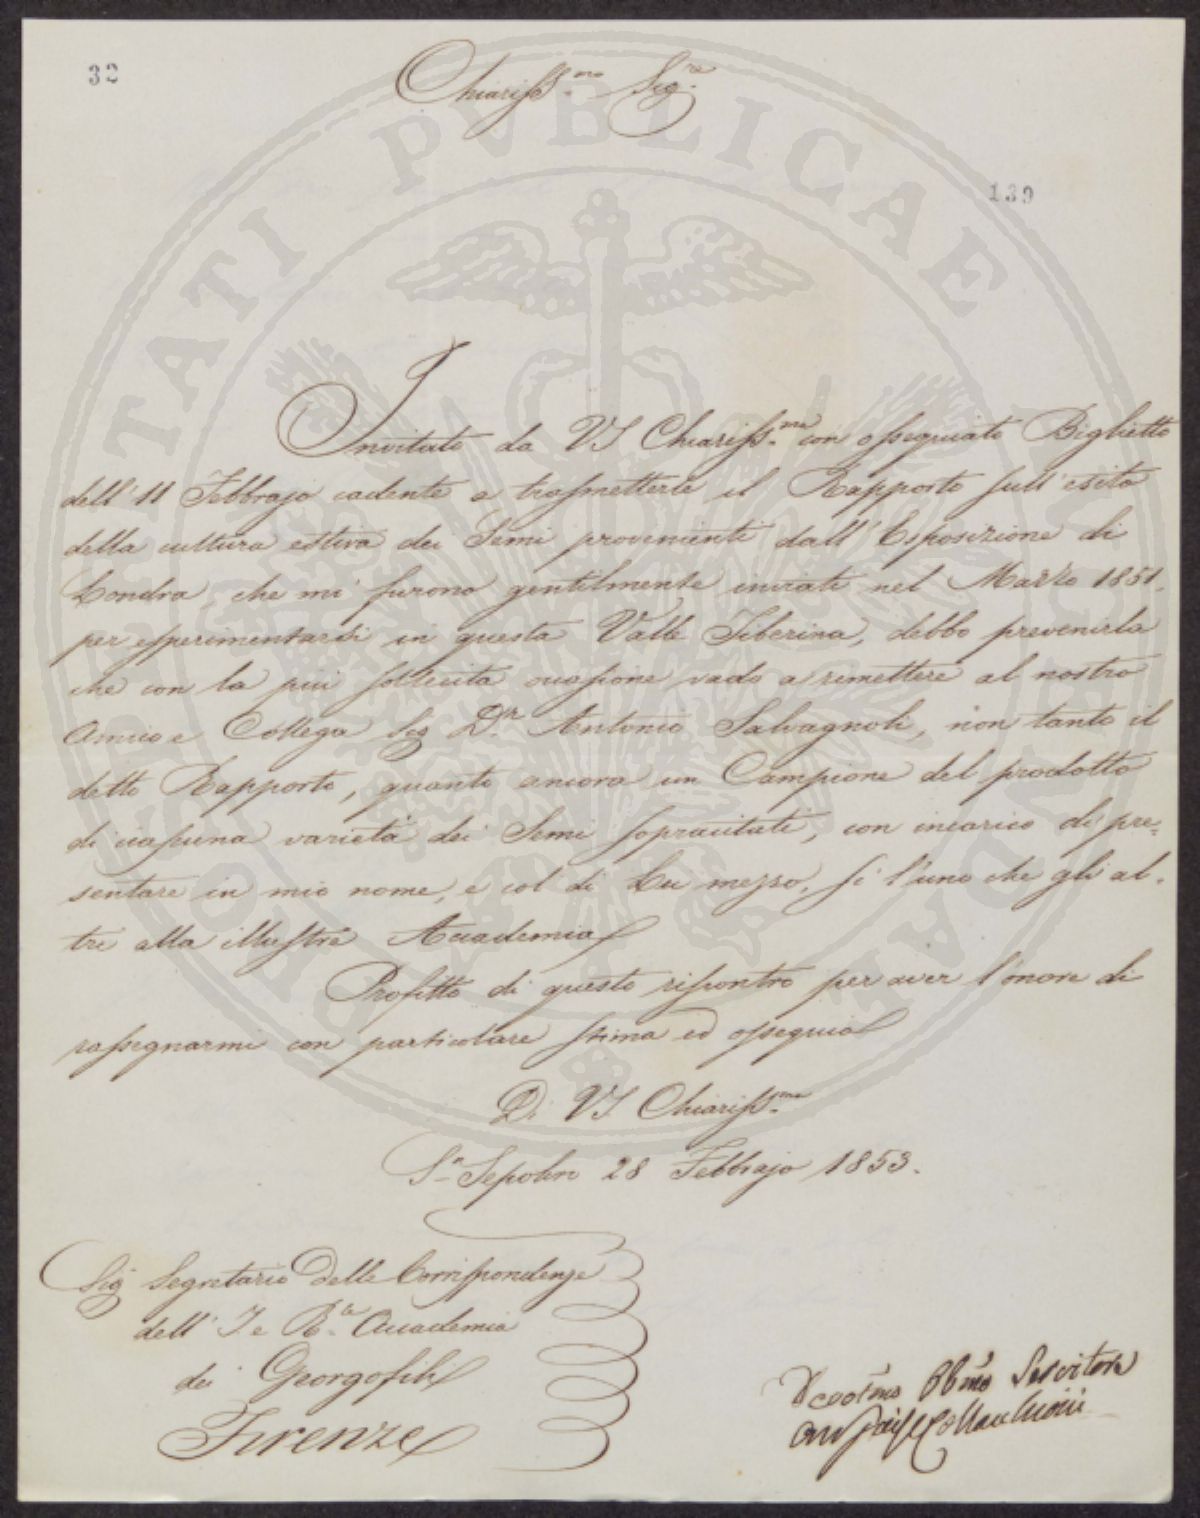 32
Chiariss.mo Sig.re
139
PVBLICAE
TATI
Invitato da VS Chiariss.ma con ossequiato Biglietto
dell'11 Febbrajo cadente a trasmetterle il Rapporto sull'esito
della cultura estiva dei Semi provenienti dall'Esposizione di
Londra, che mi furono gentilmente inviati nel Marzo 1851.
per esperimentarsi in questa Valle Tiberina, debbo prevenirla
che con la più sollecita occasione vado a rimettere al nostro
Amico e Collega Sig D.re Antonio Salvagnoli, non tanto il
detto Rapporto, quanto ancora un Campione del prodotto
di ciascuna varietà dei Semi sopracitati, con incarico di pre=
sentare in mio nome, e col di Lui mezzo, sì l'uno che gli al-
tri alla illustre Accademia
Profitto di questo riscontro per aver l'onore di
rassegnarmi con particolare stima ed ossequio
Di VS Chiariss.ma
S.n Sepolcro 28 Febbrajo 1853.
Sig Segretario delle Corrispondenze
dell'I e R.le Accademia
dei Georgofili
Firenze
Devot.mo Obb.mo Servitore